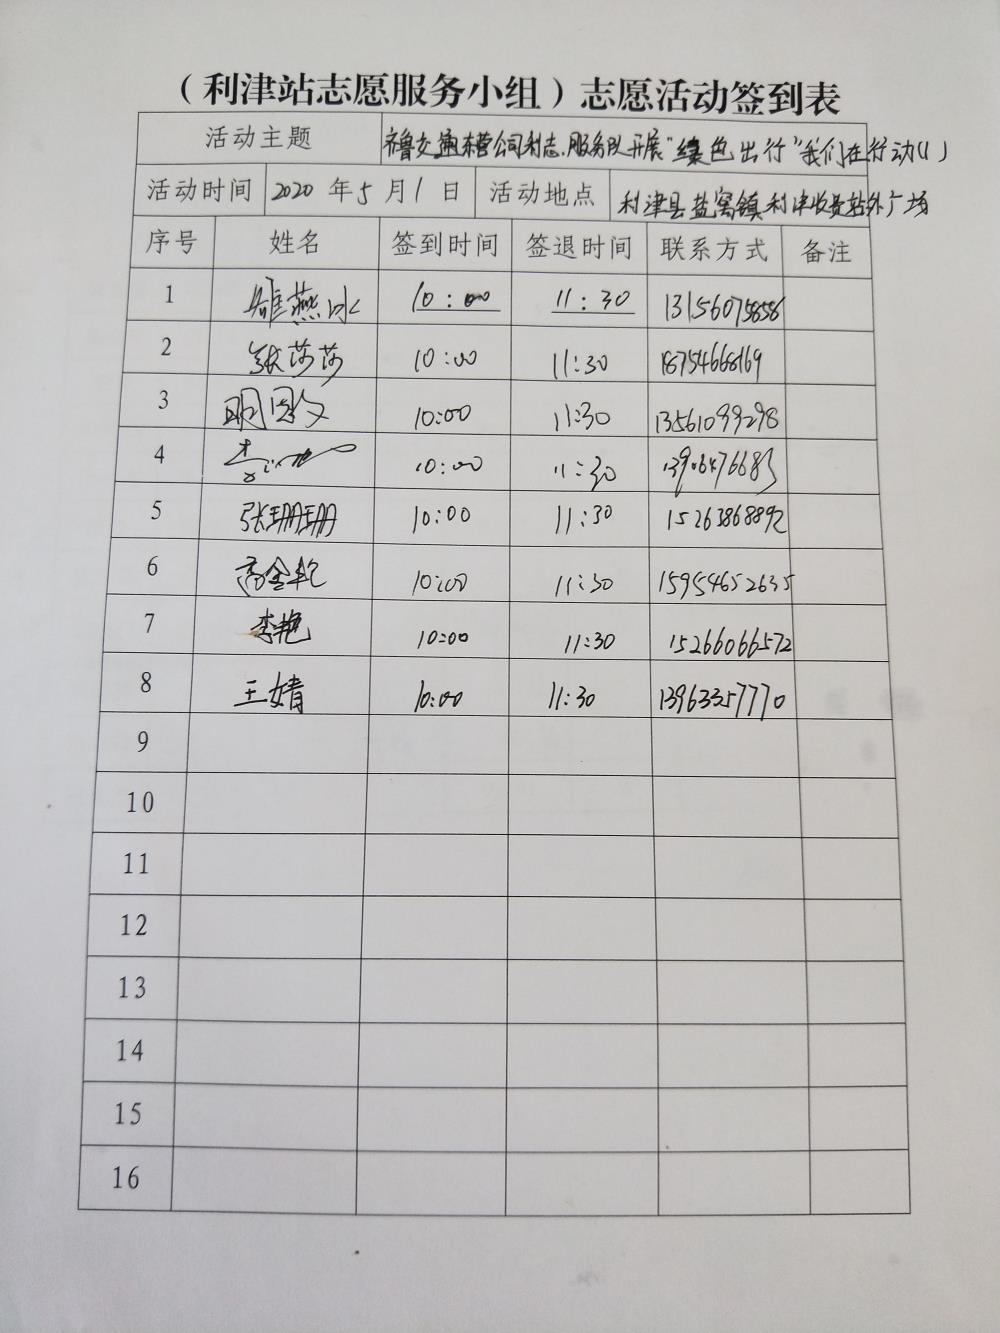 （利津站志愿服务小组）志愿活动签到表
活动主题 齐鲁交通东营公司利志服务队开展"绿色出行"我们在行动(1)
活动时间 2020 年 5 月 1 日 活动地点 利津县盐窝镇利津收费站外广场
序号 姓名 签到时间 签退时间 联系方式 备注
1 燕冰 10:00 11:30 13156075858
2 张莎莎 10:00 11:30 18754668169
3 10:00 11:30 13561099298
4 10:00 11:30
5 张珊珊 10:00 11:30 15263868892
6 10:00 11:30 15954652635
7 李艳 10:00 11:30 15266066572
8 王婧 10:00 11:30 13963357770
9
10
11
12
13
14
15
16